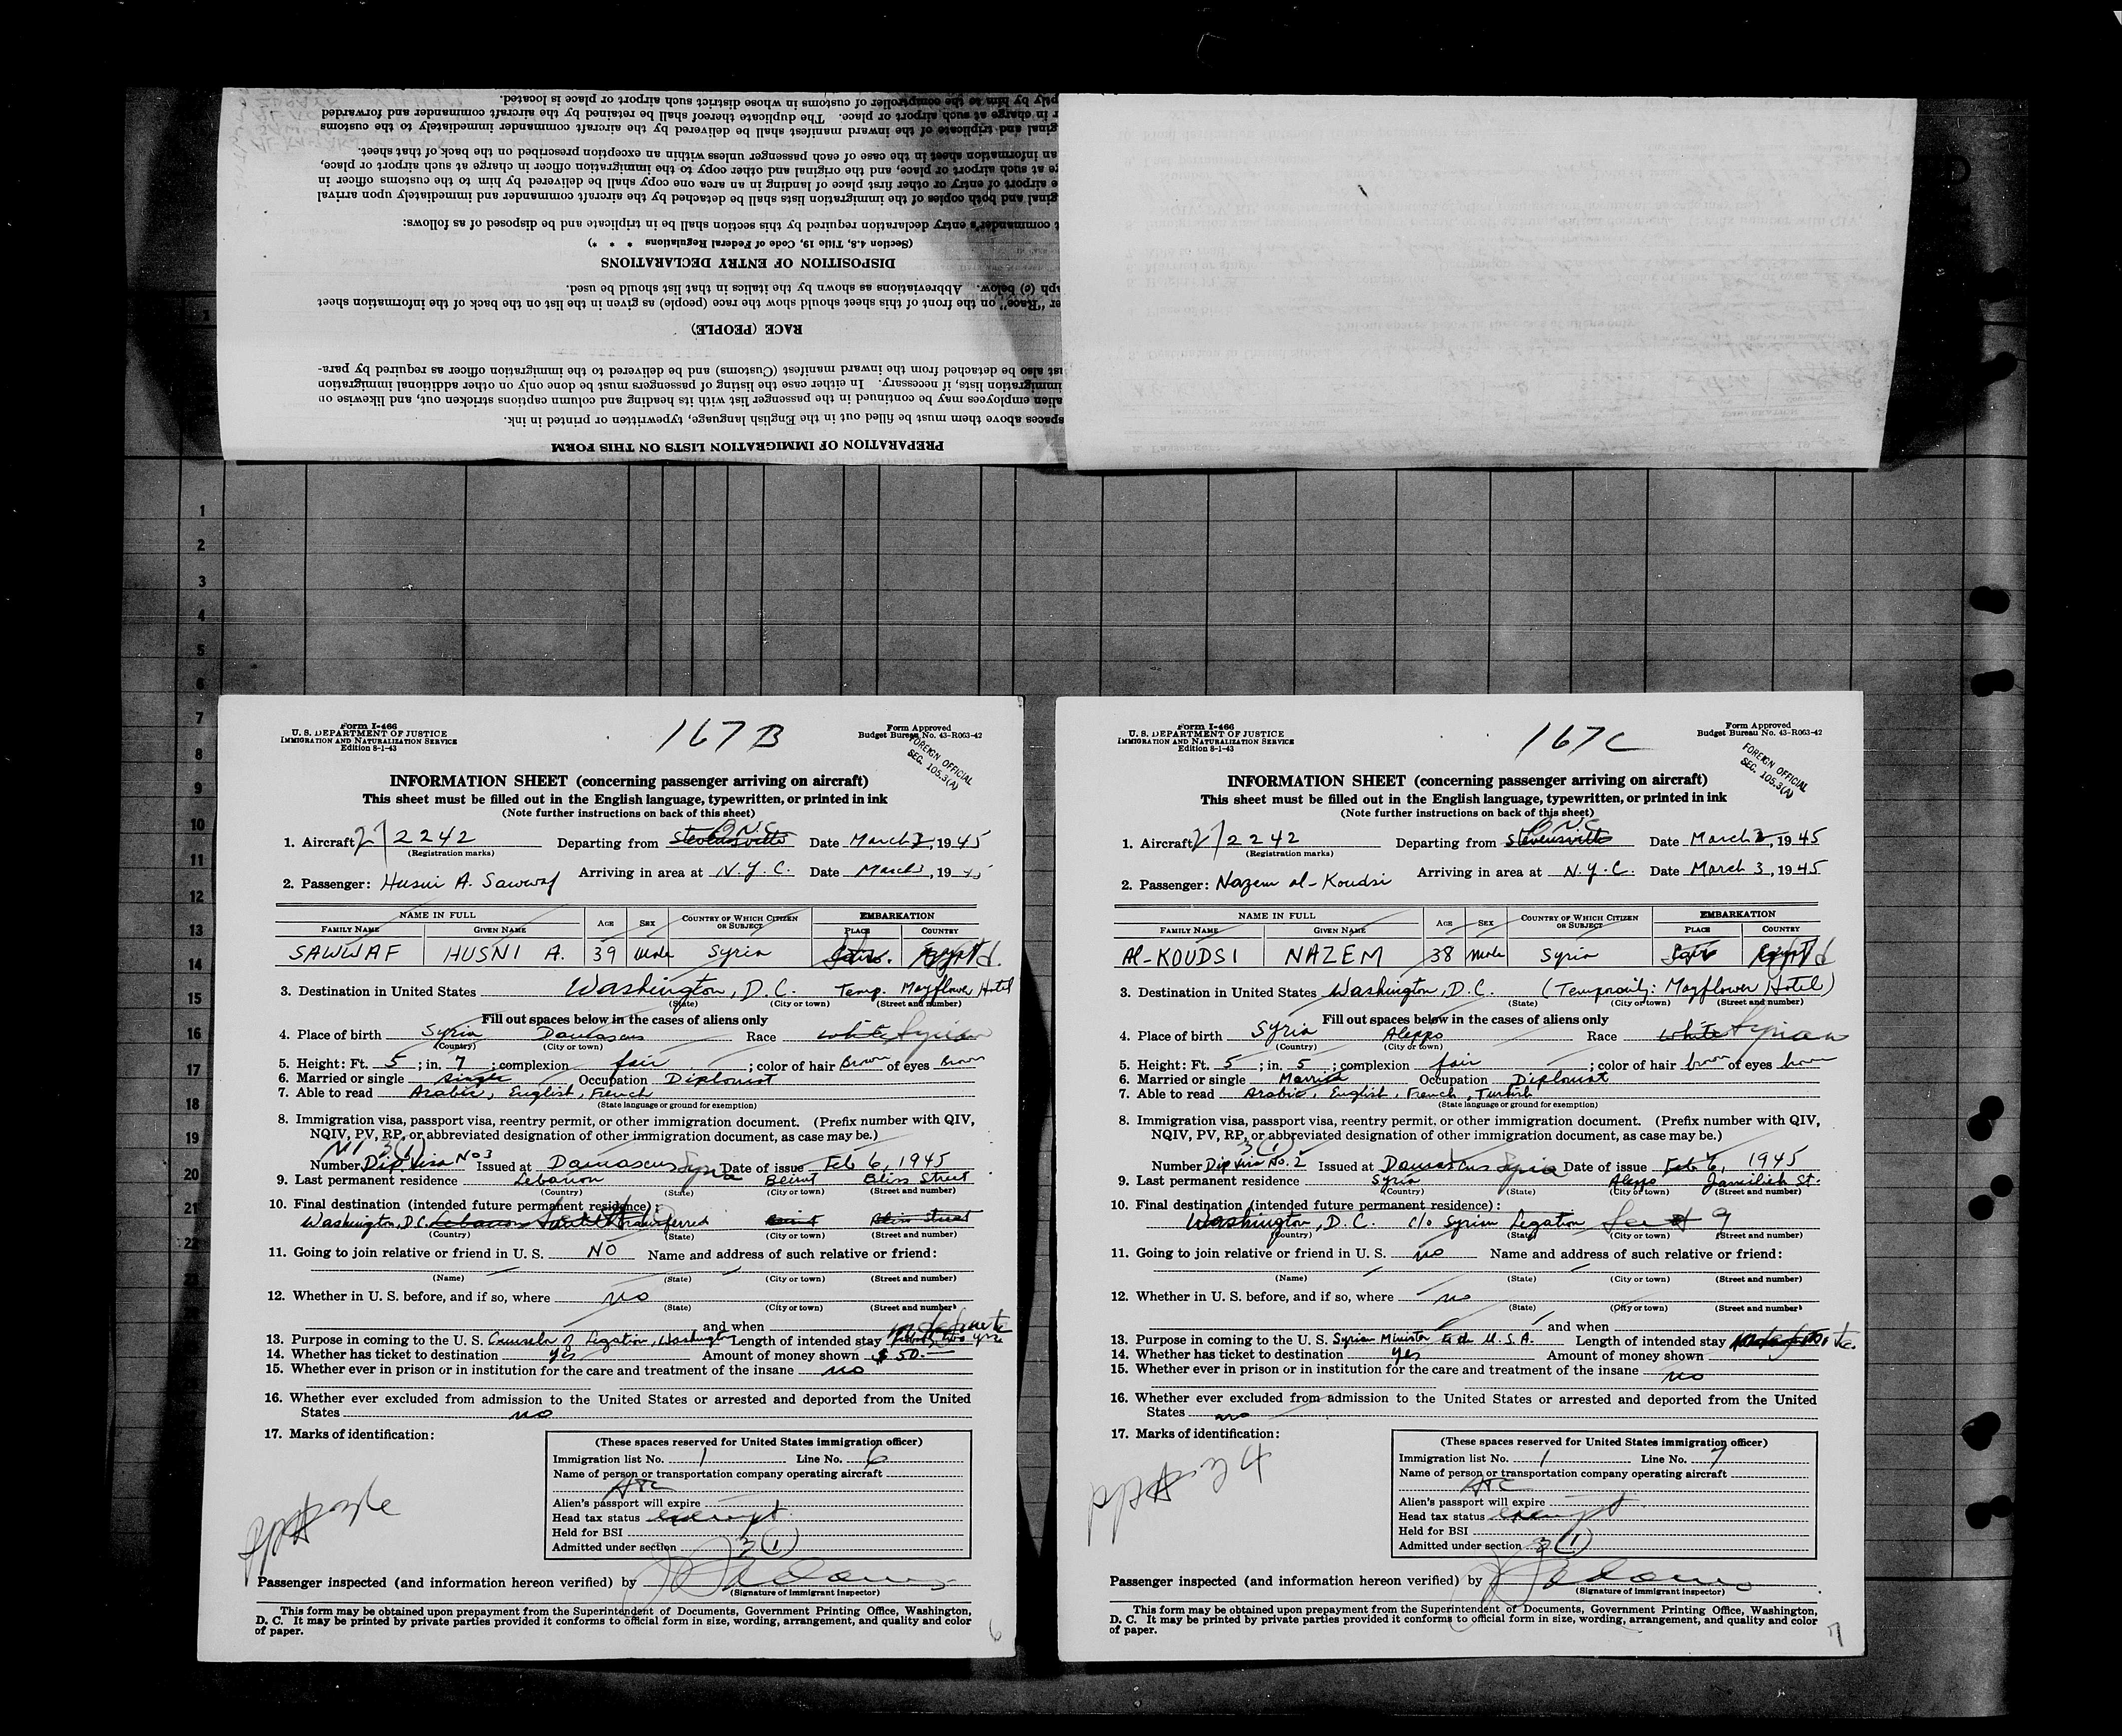 ptly by him to the comptroller of customs in whose district such airport or place is located.
r in charge at such airport or place. The duplicate thereof shall be retained by the aircraft commander and forwarded
ginal and triplicate of the inward manifest shall be delivered by the aircraft commander immediately to the customs
an information sheet in the case of each passenger unless within an exception prescribed on the back of that sheet.
ge at such airport or place, and the original and other copy to the immigration officer in charge at such airport or place,
e airport of entry or other first place of landing in an area one copy shall be delivered by him to the customs officer in
ginal and both copies of the immigration lists shall be detached by the aircraft commander and immediately upon arrival
t commander's entry declaration required by this section shall be in triplicate and be disposed of as follows:
(Section 4.8, Title 19, Code of Federal Regulations * * *)
DISPOSITION OF ENTRY DECLARATIONS
ph (c) below. Abbreviations as shown by the italics in that list should be used.
er "Race" on the front of this sheet should show the race (people) as given in the list on the back of the information sheet
RACE (PEOPLE)
ust also be detached from the inward manifest (Customs) and be delivered to the immigration officer as required by para-
immigration lists, if necessary. In either case the listing of passengers must be done only on other additional immigration
alien employees may be continued in the passenger list with its heading and column captions stricken out, and likewise on
spaces above them must be filled out in the English language, typewritten or printed in ink.
PREPARATION OF IMMIGRATION LISTS ON THIS FORM
1
2
3
4
5
6
7
8
9
10
11
12
13
14
15
16
17
18
19
20
21
22
Form I-466
U. S. DEPARTMENT OF JUSTICE
IMMIGRATION AND NATURALIZATION SERVICE
Edition 8-1-43
167 B
Form Approved
Budget Bureau No. 43-R063-42
FOREIGN OFFICIAL
SEC. 105.3(A)
INFORMATION SHEET (concerning passenger arriving on aircraft)
This sheet must be filled out in the English language, typewritten, or printed in ink
(Note further instructions on back of this sheet)
1. Aircraft 2242 Departing from Stevensville Date March 2, 1945
(Registration marks)
Arriving in area at N.Y.C. Date March, 1945
2. Passenger: Husni A. Sawwaf
NAME IN FULL AGE SEX COUNTRY OF WHICH CITIZEN OR SUBJECT EMBARKATION
FAMILY NAME GIVEN NAME PLACE COUNTRY
SAWWAF HUSNI A. 39 Male Syria Egypt
3. Destination in United States Washington, D.C. Temp. Mayflower Hotel
(State) (City or town) (Street and number)
Fill out spaces below in the cases of aliens only
4. Place of birth Syria Damascus Race white Syrian
(Country) (City or town)
5. Height: Ft. 5; in. 7; complexion fair; color of hair Brown of eyes Brown
6. Married or single single Occupation Diplomat
7. Able to read Arabic, English, French
(State language or ground for exemption)
8. Immigration visa, passport visa, reentry permit, or other immigration document. (Prefix number with QIV,
NQIV, PV, RP, or abbreviated designation of other immigration document, as case may be.)
3(1)
Number Dip. Visa No 3 Issued at Damascus Syria Date of issue Feb 6, 1945
9. Last permanent residence Lebanon Beirut Bliss Street
(Country) (State) (City or town) (Street and number)
10. Final destination (intended future permanent residence):
Washington, D.C. Lebanon transferred Beirut Bliss street
(Country) (State) (City or town) (Street and number)
11. Going to join relative or friend in U. S. NO Name and address of such relative or friend:
(Name) (State) (City or town) (Street and number)
12. Whether in U. S. before, and if so, where no
(State) (City or town) (Street and number)
and when
13. Purpose in coming to the U. S. Counselor of Legation, Washington Length of intended stay indefinite about two yrs
14. Whether has ticket to destination yes Amount of money shown $50.—
15. Whether ever in prison or in institution for the care and treatment of the insane no
16. Whether ever excluded from admission to the United States or arrested and deported from the United
States no
17. Marks of identification:
(These spaces reserved for United States immigration officer)
Immigration list No. 1 Line No. 6
Name of person or transportation company operating aircraft
ATC
Alien's passport will expire
Head tax status exempt
Held for BSI
Admitted under section 3 (1)
Passenger inspected (and information hereon verified) by
(Signature of immigrant inspector)
This form may be obtained upon prepayment from the Superintendent of Documents, Government Printing Office, Washington,
D. C. It may be printed by private parties provided it conforms to official form in size, wording, arrangement, and quality and color
of paper.
6
Form I-466
U. S. DEPARTMENT OF JUSTICE
IMMIGRATION AND NATURALIZATION SERVICE
Edition 8-1-43
167 C
Form Approved
Budget Bureau No. 43-R063-42
FOREIGN OFFICIAL
SEC. 105.3(A)
INFORMATION SHEET (concerning passenger arriving on aircraft)
This sheet must be filled out in the English language, typewritten, or printed in ink
(Note further instructions on back of this sheet)
1. Aircraft 2242 Departing from Stevensville Date March 2, 1945
(Registration marks)
Arriving in area at N.Y.C. Date March 3, 1945
2. Passenger: Nazem al-Koudsi
NAME IN FULL AGE SEX COUNTRY OF WHICH CITIZEN OR SUBJECT EMBARKATION
FAMILY NAME GIVEN NAME PLACE COUNTRY
Al-KOUDSI NAZEM 38 Male Syria Egypt
3. Destination in United States Washington, D.C. (Temporarily: Mayflower Hotel)
(State) (City or town) (Street and number)
Fill out spaces below in the cases of aliens only
4. Place of birth Syria Aleppo Race white Syrian
(Country) (City or town)
5. Height: Ft. 5; in. 5; complexion fair; color of hair brown of eyes brown
6. Married or single Married Occupation Diplomat
7. Able to read Arabic, English, French, Turkish
(State language or ground for exemption)
8. Immigration visa, passport visa, reentry permit, or other immigration document. (Prefix number with QIV,
NQIV, PV, RP, or abbreviated designation of other immigration document, as case may be.)
3(1)
Number Dip Visa No. 2 Issued at Damascus Syria Date of issue Feb 6, 1945
9. Last permanent residence Syria Aleppo Jamilieh St.
(Country) (State) (City or town) (Street and number)
10. Final destination (intended future permanent residence):
Washington, D.C. c/o Syrian Legation See # 9
(Country) (State) (City or town) (Street and number)
11. Going to join relative or friend in U. S. no Name and address of such relative or friend:
(Name) (State) (City or town) (Street and number)
12. Whether in U. S. before, and if so, where no
(State) (City or town) (Street and number)
and when
13. Purpose in coming to the U. S. Syrian Minister to the U.S.A. Length of intended stay
14. Whether has ticket to destination yes Amount of money shown
15. Whether ever in prison or in institution for the care and treatment of the insane
no
16. Whether ever excluded from admission to the United States or arrested and deported from the United
States no
17. Marks of identification:
(These spaces reserved for United States immigration officer)
Immigration list No. 1 Line No. 7
Name of person or transportation company operating aircraft
ATC
Alien's passport will expire
Head tax status exempt
Held for BSI
Admitted under section 3 (1)
Passenger inspected (and information hereon verified) by
(Signature of immigrant inspector)
This form may be obtained upon prepayment from the Superintendent of Documents, Government Printing Office, Washington,
D. C. It may be printed by private parties provided it conforms to official form in size, wording, arrangement, and quality and color
of paper.
7